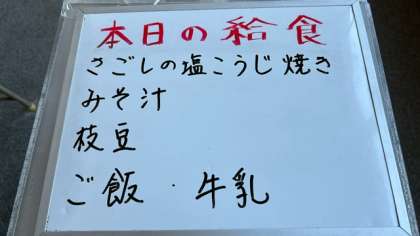 本日の給食
さごしの塩こうじ焼き
みそ汁
枝豆
ご飯・牛乳